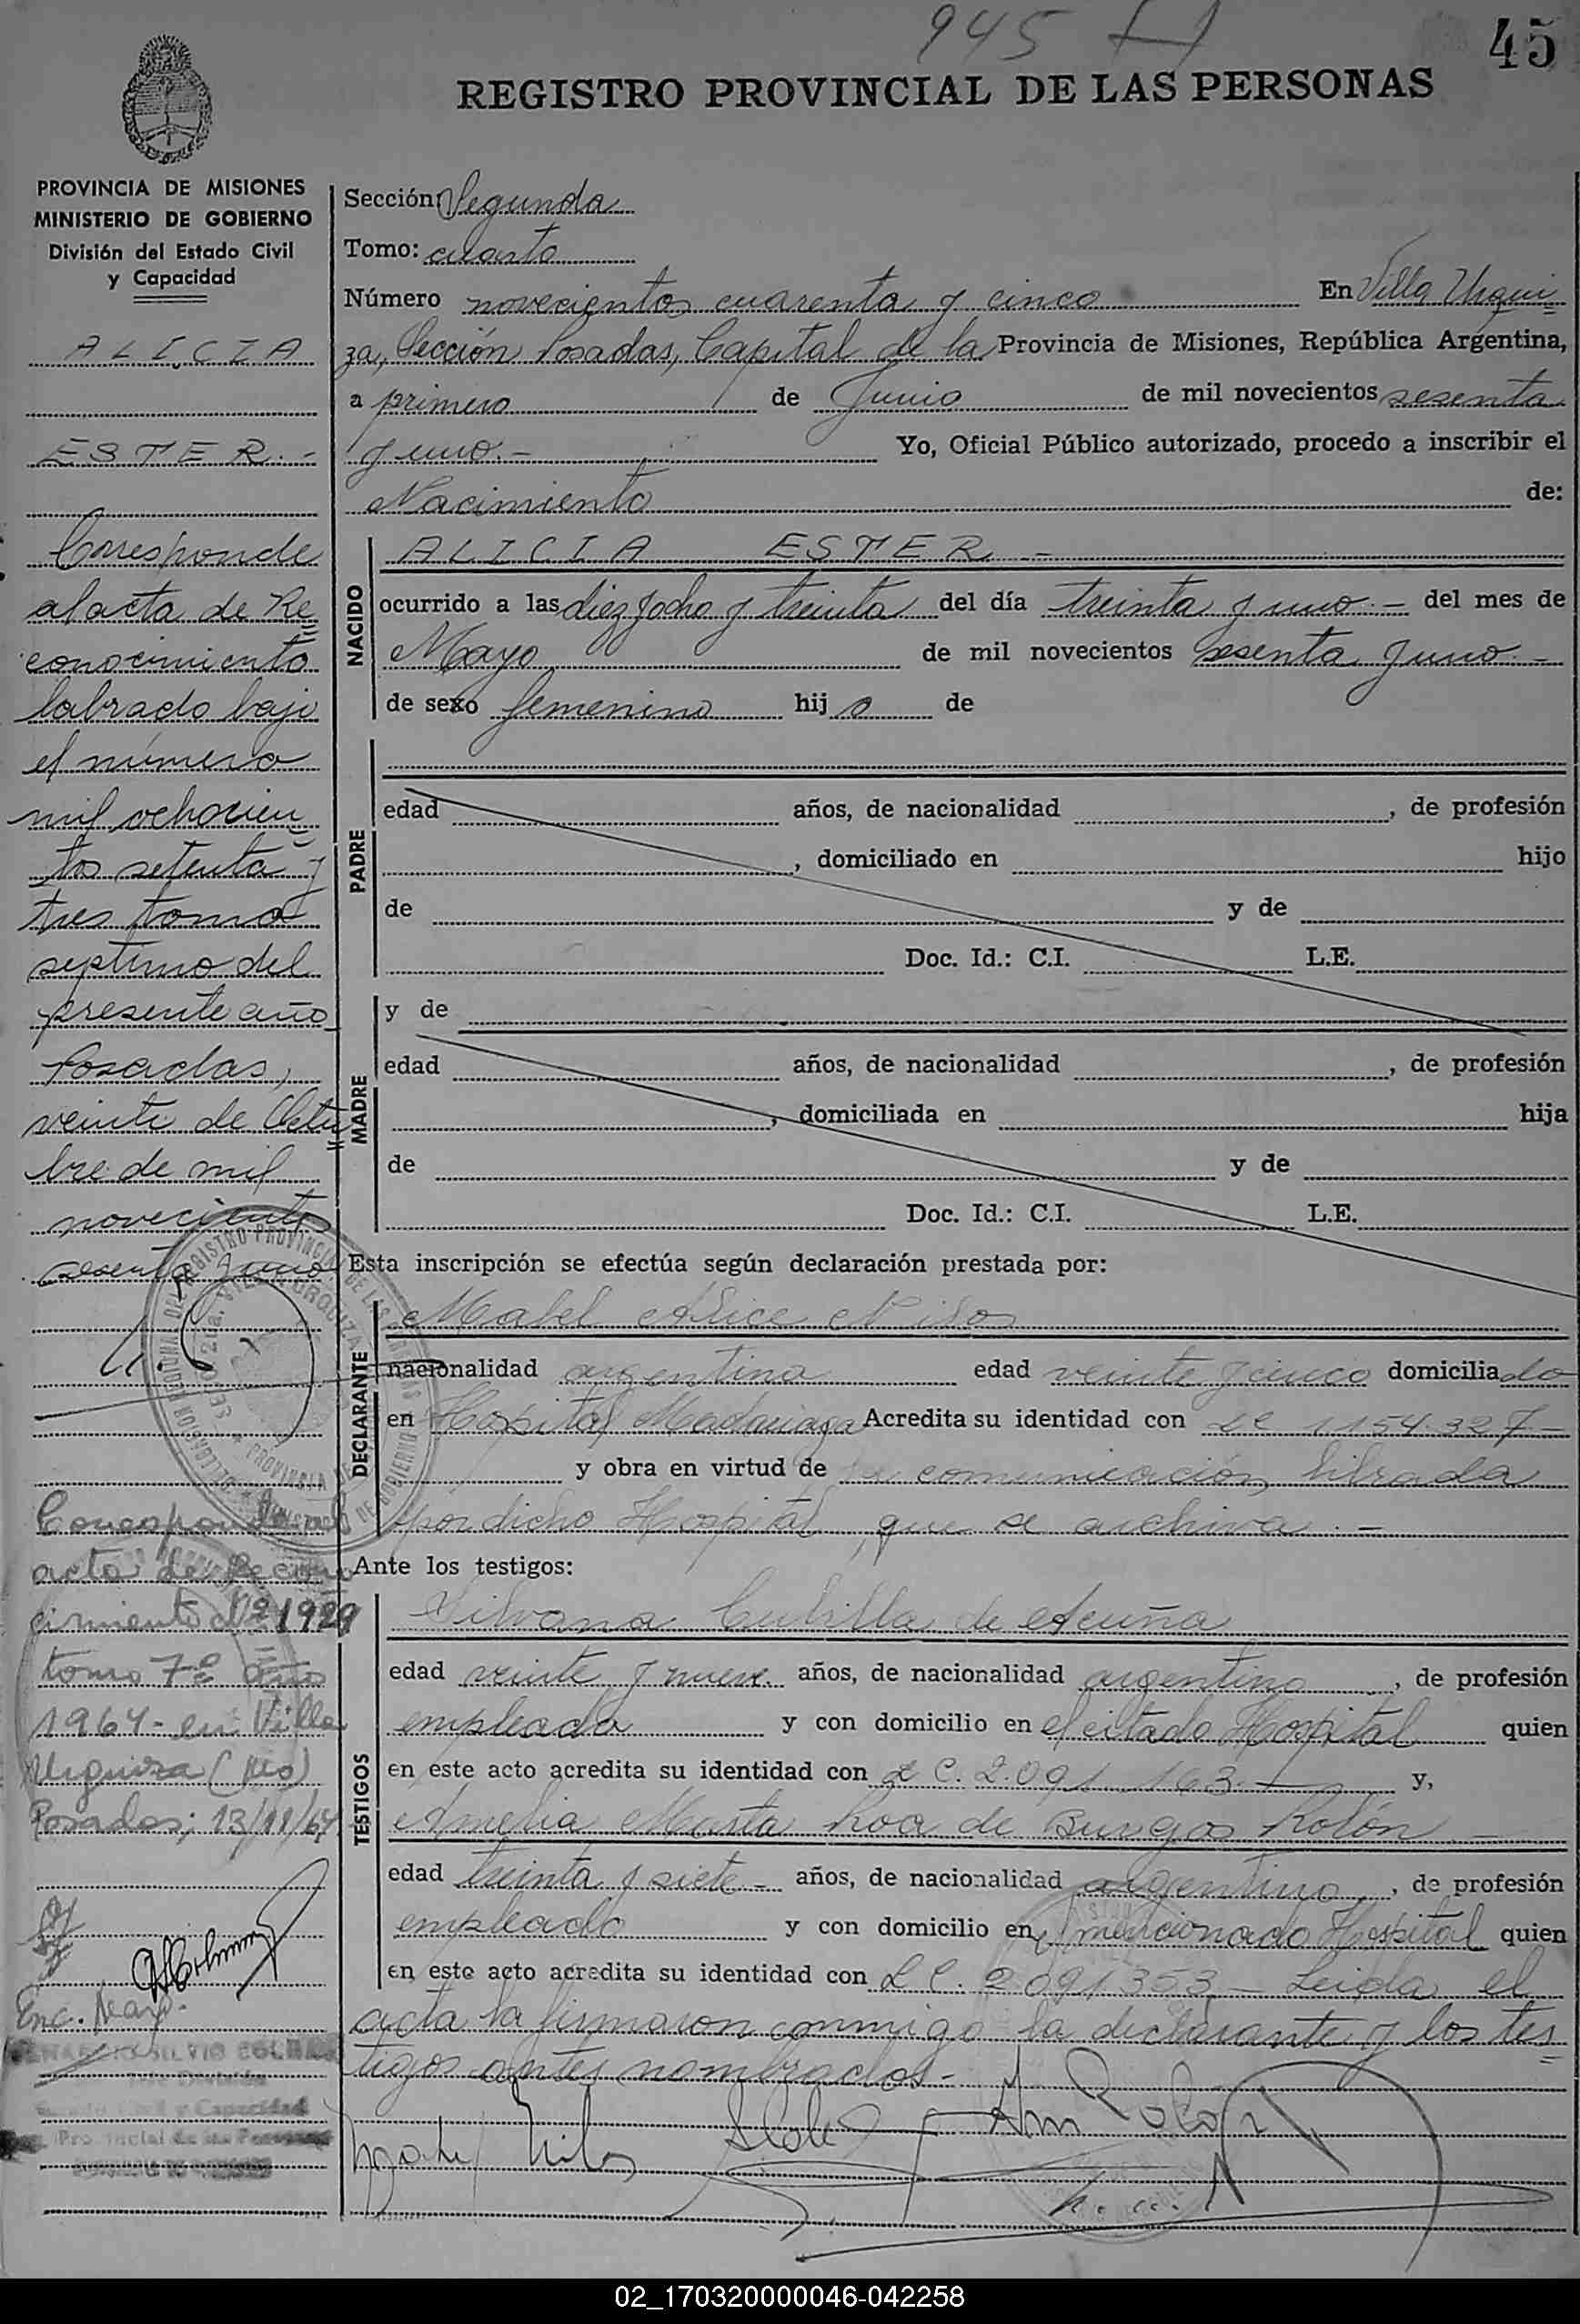 945
45
REGISTRO PROVINCIAL DE LAS PERSONAS
PROVINCIA DE MISIONES
MINISTERIO DE GOBIERNO
División del Estado Civil
y Capacidad
ALICIA
ESTER.-
Corresponde
al acta de Re
conocimiento
labrado bajo
el número
mil ochocien
tos setenta y
tres tomo
septimo del
presente año
Posadas,
veinte de Octu
bre de mil
novecientos
sesenta y uno
Corresponde al
acta de Recono
cimiento Nº 1929
tomo 7º año
1964 - en Villa
Urquiza (Mis)
Posadas; 13/11/64
Enc.
Sección: Segunda
Tomo: cuarto
Número novecientos cuarenta y cinco En Villa Urqui
za, Sección Posadas, Capital de la Provincia de Misiones, República Argentina,
a primero de Junio de mil novecientos sesenta
y uno.- Yo, Oficial Público autorizado, procedo a inscribir el
Nacimiento de:
NACIDO
ALICIA ESTER.-
ocurrido a las diez y ocho y treinta del día treinta y uno.- del mes de
Mayo de mil novecientos sesenta y uno.-
de sexo femenino hijo de
PADRE
edad años, de nacionalidad , de profesión
, domiciliado en hijo
de y de
Doc. Id.: C.I. L.E.
MADRE
y de
edad años, de nacionalidad , de profesión
, domiciliada en hija
de y de
Doc. Id.: C.I. L.E.
Esta inscripción se efectúa según declaración prestada por:
DECLARANTE
Mabel Alice Nilos
nacionalidad argentina edad veinte y cinco domiciliado
en Hospital Madariaga Acredita su identidad con LC 1154.327-
y obra en virtud de comunicación librada
por dicho Hospital, que se archiva.-
Ante los testigos:
TESTIGOS
Silvana Cubilla de Acuña
edad veinte y nueve años, de nacionalidad argentino, de profesión
empleado y con domicilio en el citado Hospital quien
en este acto acredita su identidad con L C. 2.091.163.- y,
Amelia Marta Roa de Burgos Rolón-
edad treinta y siete- años, de nacionalidad argentino, de profesión
empleado y con domicilio en el mencionado Hospital quien
en este acto acredita su identidad con L C. 2091353.- Leida el
acta la firmaron conmigo la declarante y los tes
tigos antes nombrados.-
02_170320000046-042258